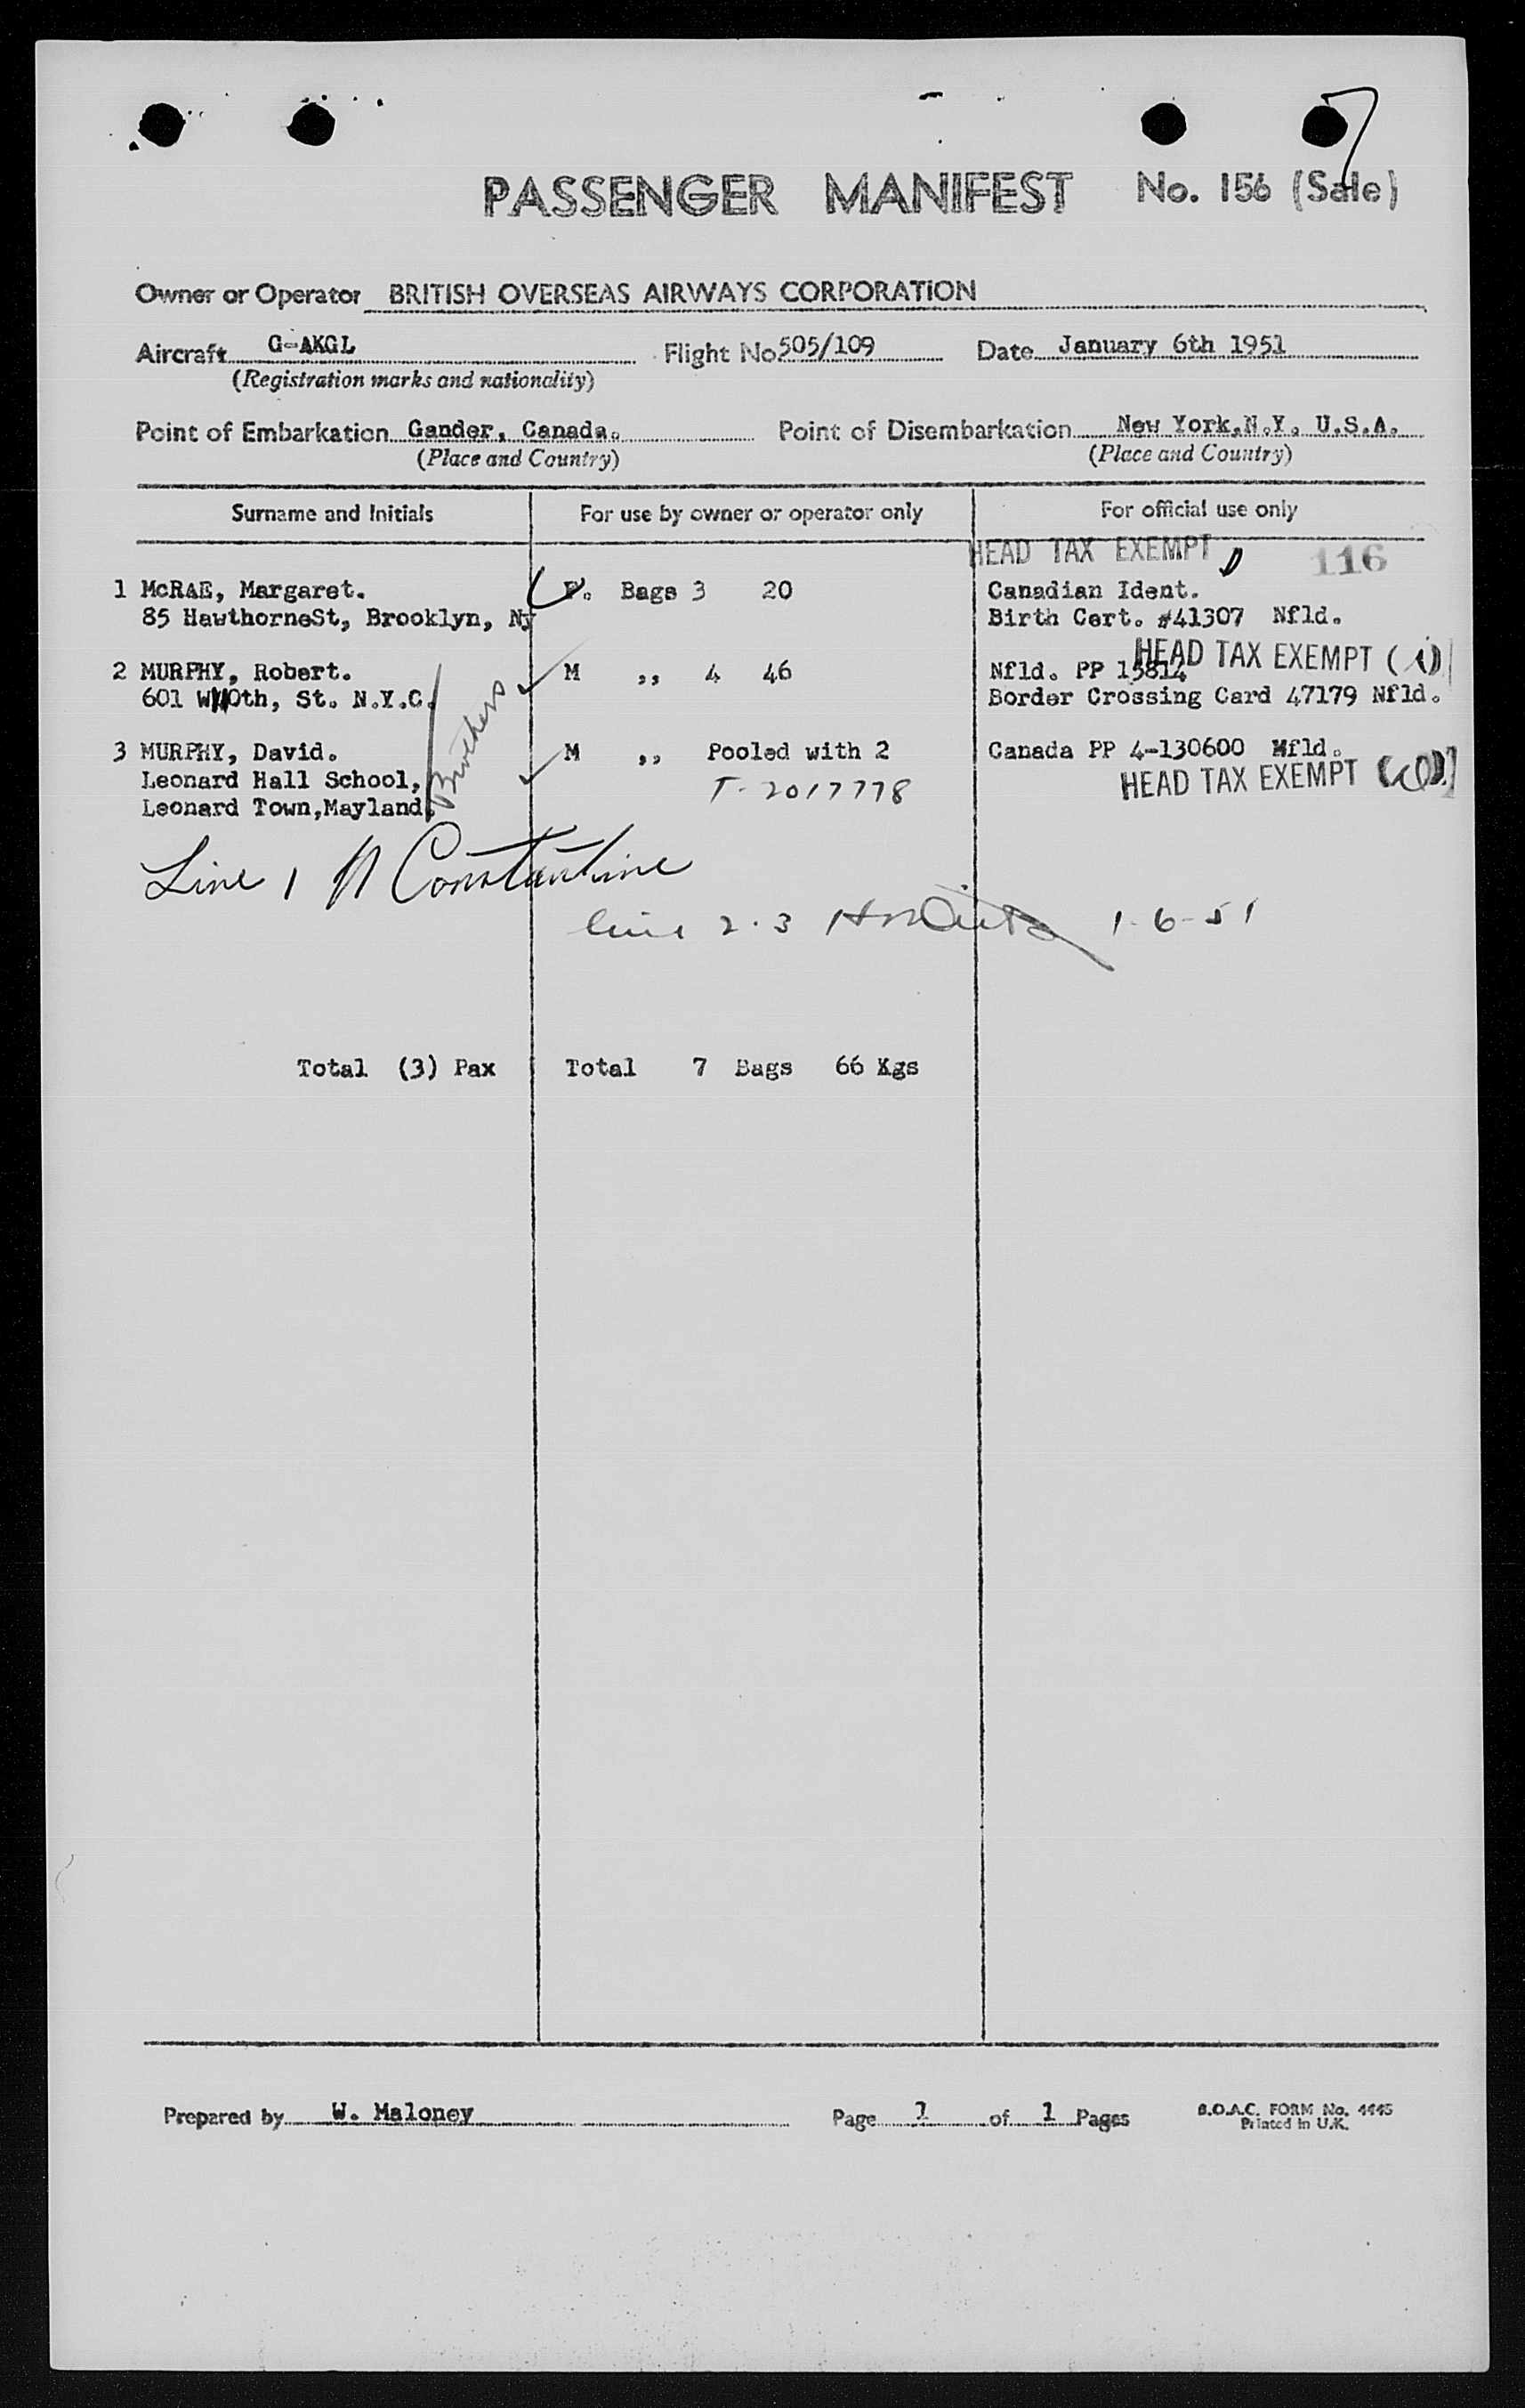 7
PASSENGER MANIFEST No. 156 (Sale)
Owner or Operator BRITISH OVERSEAS AIRWAYS CORPORATION
Aircraft G-AKGL Flight No 505/109 Date January 6th 1951
(Registration marks and nationality)
Point of Embarkation Gander, Canada. Point of Disembarkation New York,N.Y. U.S.A.
(Place and Country) (Place and Country)
Surname and Initials For use by owner or operator only For official use only
HEAD TAX EXEMPT 116
1 McRAE, Margaret. F. Bags 3 20 Canadian Ident.
85 HawthorneSt, Brooklyn, Ny Birth Cert. #41307 Nfld.
HEAD TAX EXEMPT (i)
2 MURPHY, Robert. M ,, 4 46 Nfld. PP 15814
601 W110th, St. N.Y.C. Border Crossing Card 47179 Nfld.
Brothers
3 MURPHY, David. M ,, Pooled with 2 Canada PP 4-130600 Nfld.
Leonard Hall School, T-2017778 HEAD TAX EXEMPT
Leonard Town,Mayland.
Line 1 N Constantine
line 2.3 1-6-51
Total (3) Pax Total 7 Bags 66 Kgs
Prepared by W. Maloney Page 1 of 1 Pages B.O.A.C. FORM No. 4445
Printed in U.K.